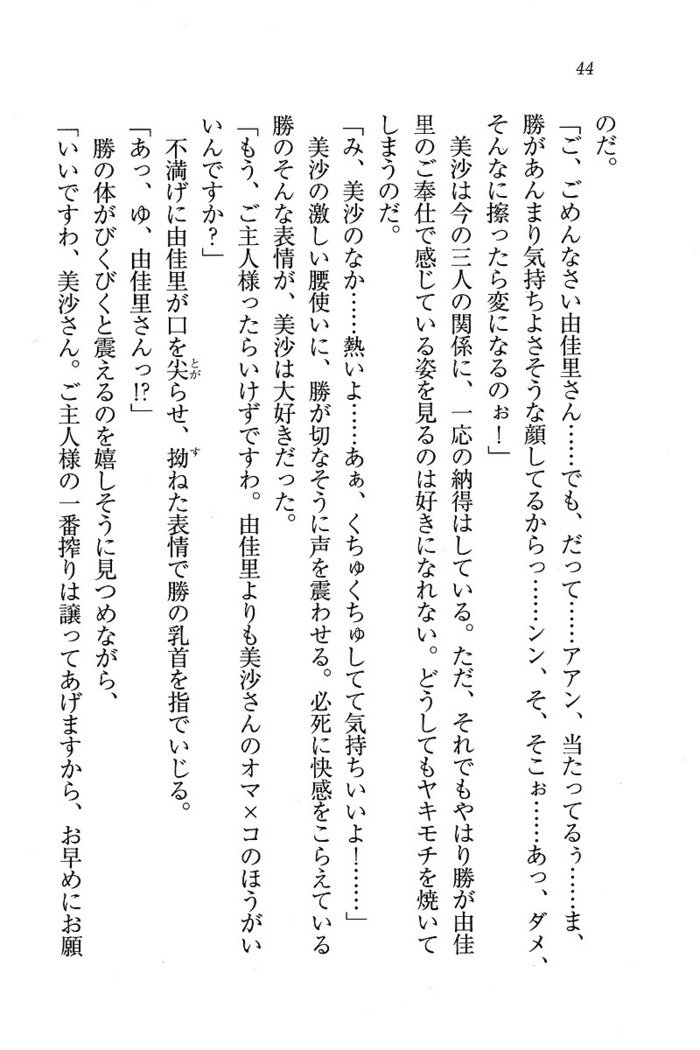 44
のだ。
「ご、ごめんなさい由佳里さん……でも、だって……アアン、当たってるぅ……ま、
勝があんまり気持ちよさそうな顔してるからっ……ンン、そ、そこぉ……あっ、ダメ、
そんなに擦ったら変になるのぉ！」
美沙は今の三人の関係に、一応の納得はしている。ただ、それでもやはり勝が由佳
里のご奉仕で感じている姿を見るのは好きになれない。どうしてもヤキモチを焼いて
しまうのだ。
「み、美沙のなか……熱いよ……あぁ、くちゅくちゅしてて気持ちいいよ！……」
美沙の激しい腰使いに、勝が切なそうに声を震わせる。必死に快感をこらえている
勝のそんな表情が、美沙は大好きだった。
「もう、ご主人様ったらいけずですわ。由佳里よりも美沙さんのオマ×コのほうがい
いんですか？」
不満げに由佳里が口を尖らせ、拗ねた表情で勝の乳首を指でいじる。
「あっ、ゆ、由佳里さんっ!?」
勝の体がびくびくと震えるのを嬉しそうに見つめながら、
「いいですわ、美沙さん。ご主人様の一番搾りは譲ってあげますから、お早めにお願